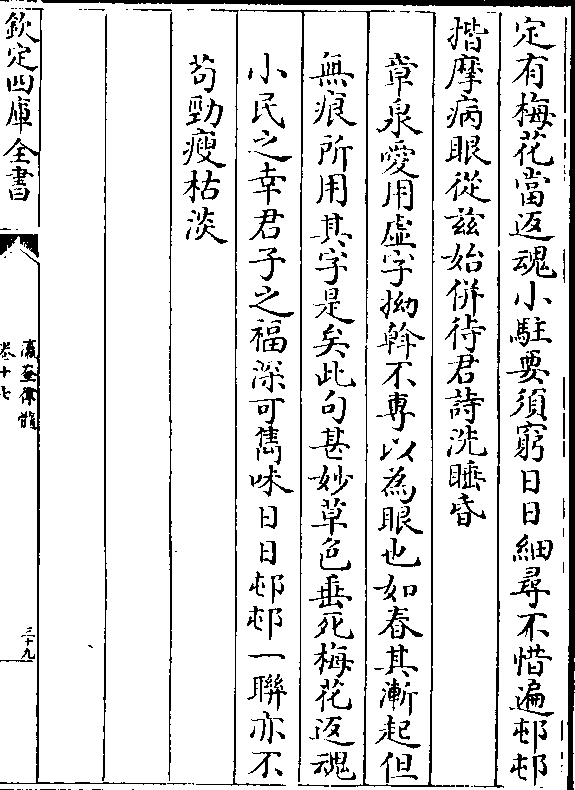 定有梅花當返魂小駐要須窮日日細尋不惜遍邨邨
揩摩病眼從兹始併待君詩洗睡昏
章泉愛用虚字拗斡不専以為眼也如春其漸起但
無痕所用其字是矣此句甚妙草色垂死梅花返魂
小民之幸君子之福深可雋味日日邨邨一聯亦不
茍勁瘦枯淡
欽定四庫全書
瀛奎律髓
卷十七
三十九